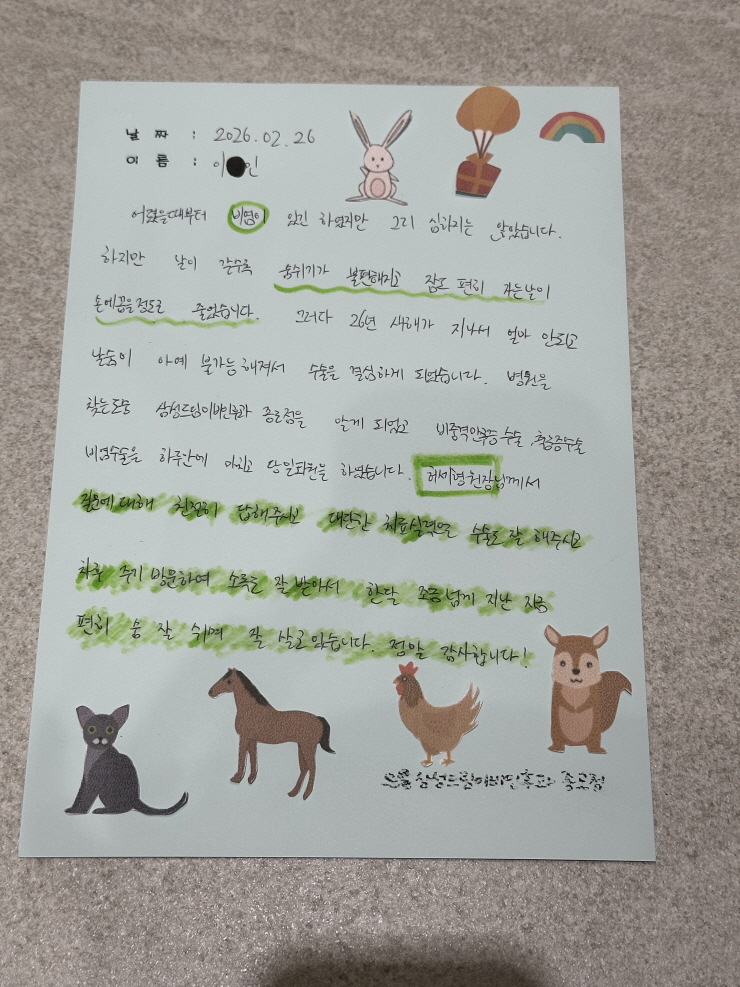 날 짜 : 2026.02.26
이 름 : 이 인
어렸을때부터 비염이 있긴 하였지만 그리 심하지는 않았습니다.
하지만 날이 갈수록 숨쉬기가 불편해지고 잠도 편히 자는날이
손에꼽을정도로 줄었습니다. 그러다 26년 새해가 지나서 얼마 안되고
날숨이 아예 불가능해져서 수술을 결심하게 되었습니다. 병원을
찾는도중 삼성드림이비인후과 종로점을 알게 되었고 비중격만곡증수술,
비염수술을 하루만에 마치고 당일퇴원을 하였습니다. 원장님께서
질문에대해 친절히 답해주시고 대단한 치료실력으로 수술도 잘 해주시고
차후 주기 방문하여 소독도 잘 받아서 한달 조금넘게 지난 지금
편히 숨 잘 쉬며 잘 살고있습니다. 정말 감사합니다!
삼성드림이비인후과 종로점